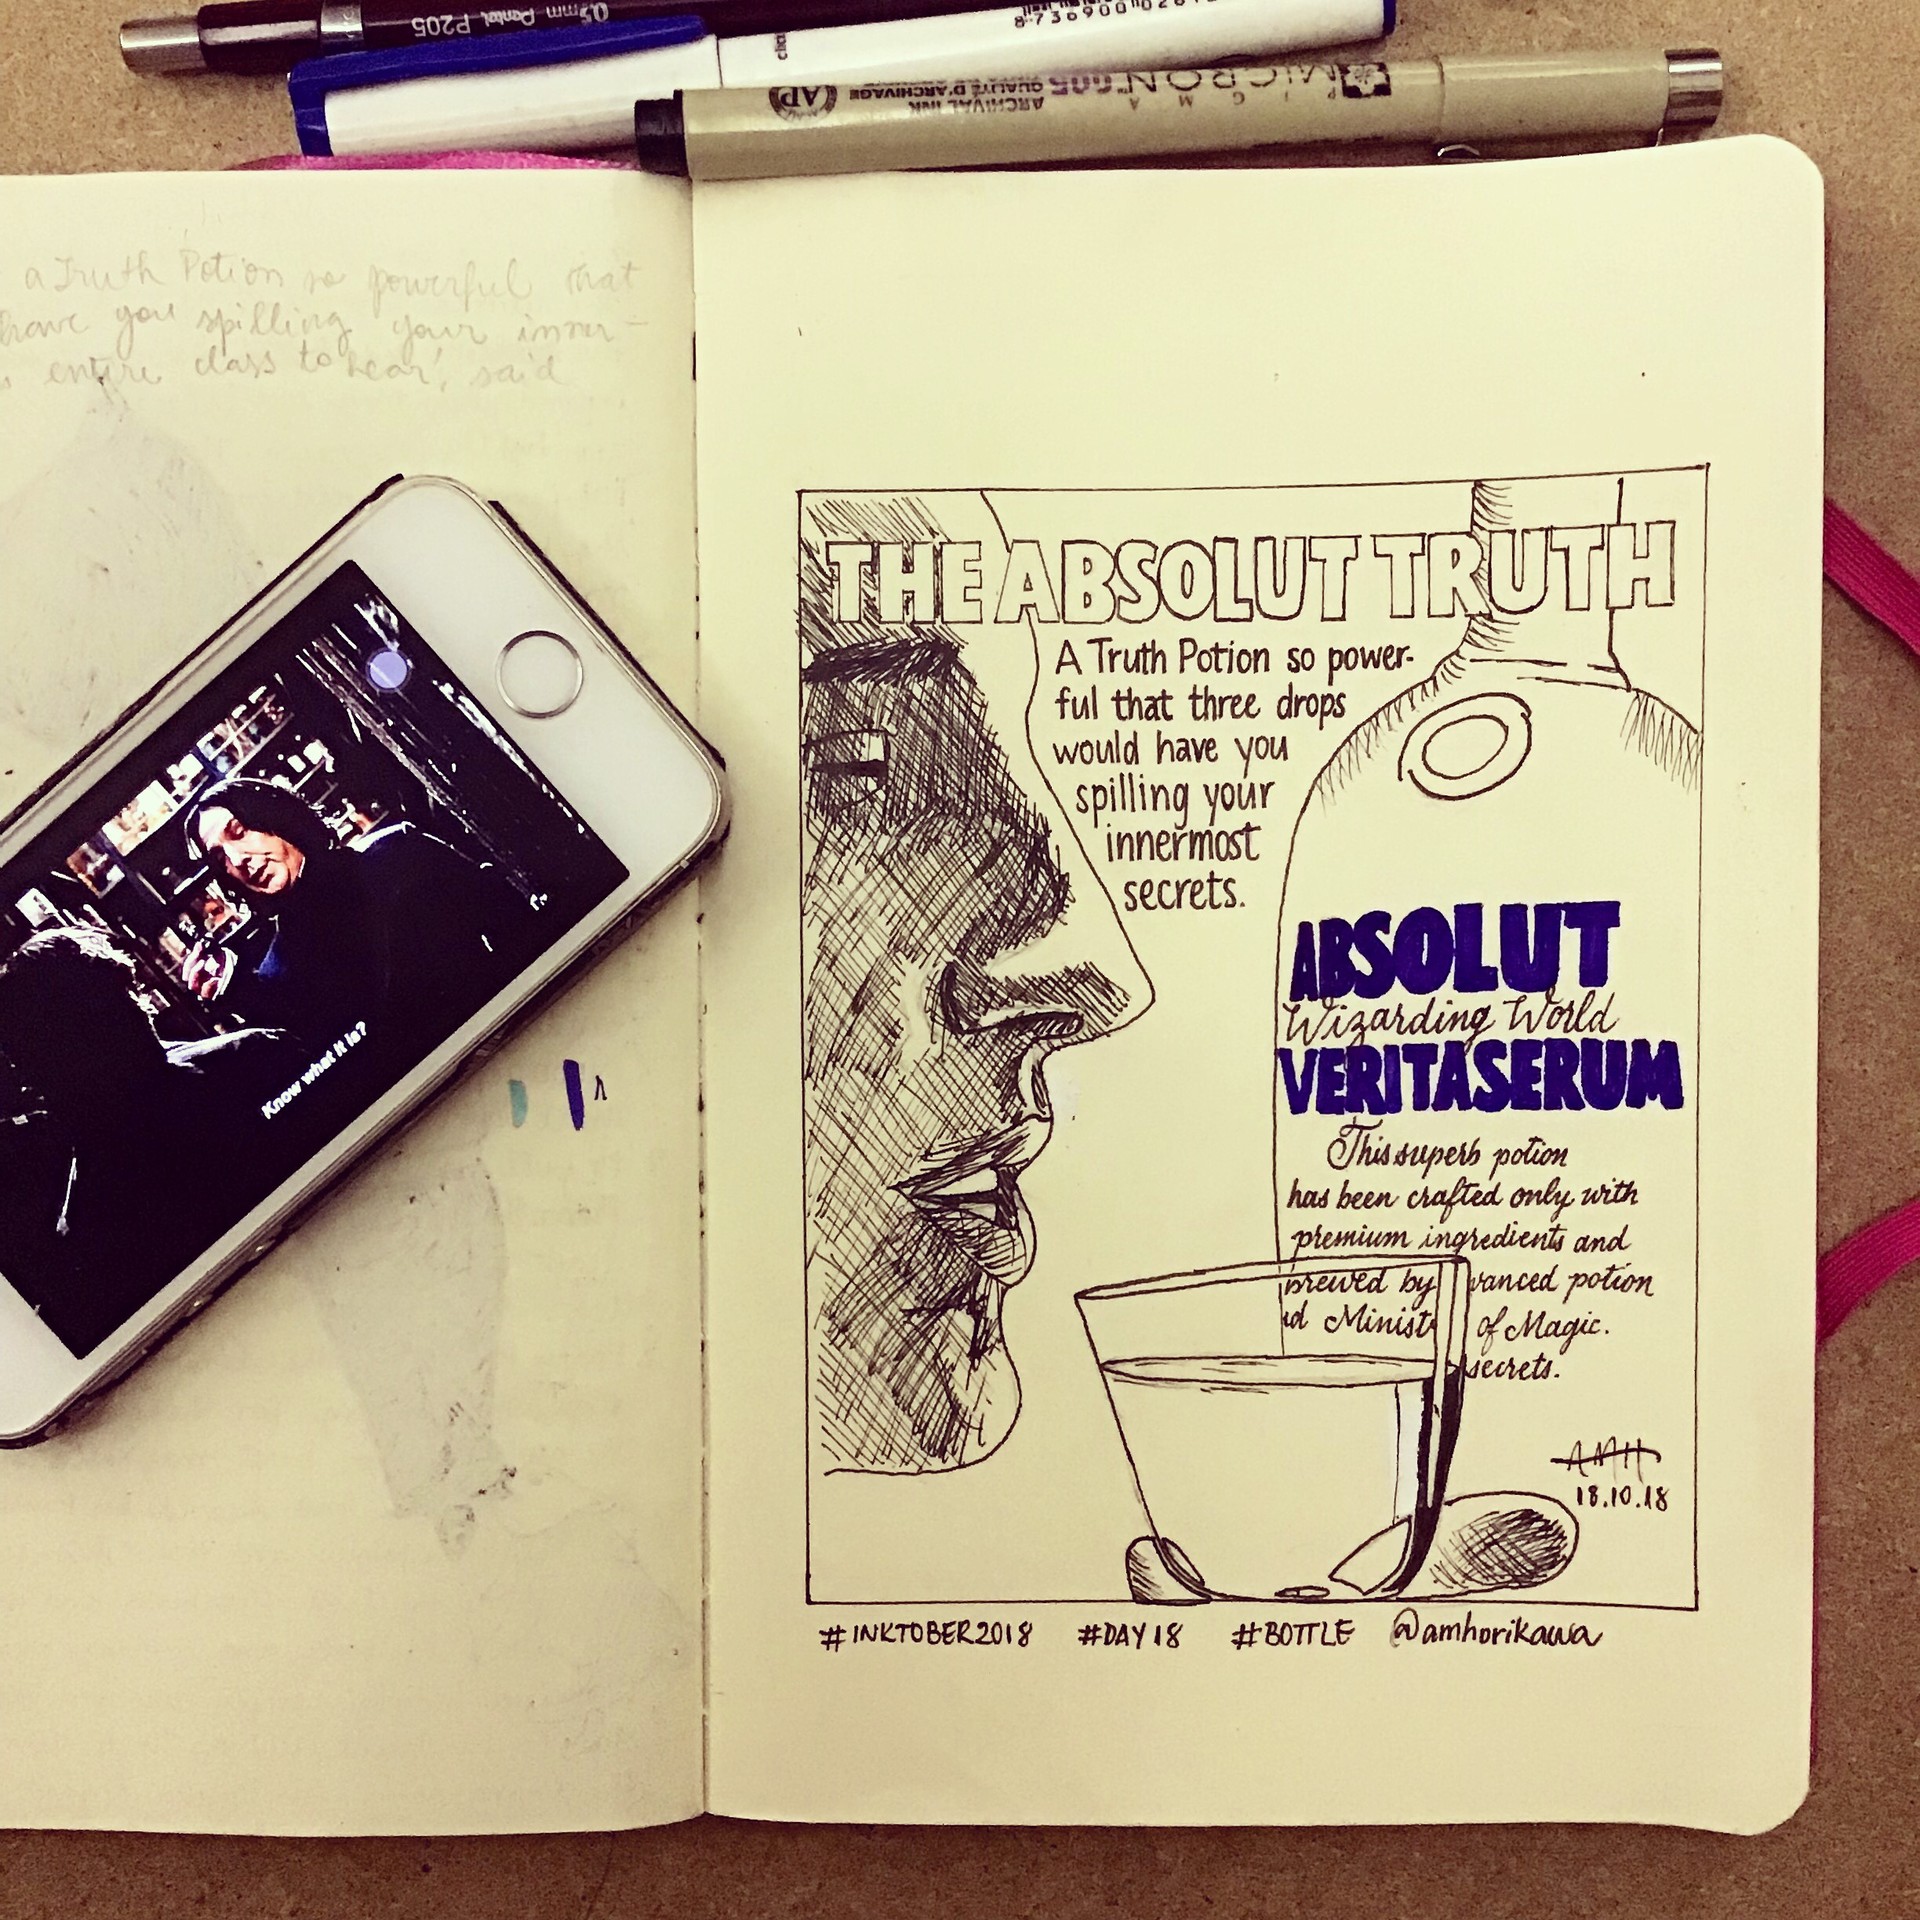 Pentel P205
0.5mm
PIGMA MICRON 005
ARCHIVAL INK
QUALITÉ D'ARCHIVAGE
AP
a Truth Potion so powerful that
have you spilling your inner-
entire class to hear', said
Know what it is?
THE ABSOLUT TRUTH
A Truth Potion so power-
ful that three drops
would have you
spilling your
innermost
secrets.
ABSOLUT
Wizarding World
VERITASERUM
This superb potion
has been crafted only with
premium ingredients and
brewed by vanced potion
d Minist of Magic.
secrets.
AMH
18.10.18
#INKTOBER2018 #DAY18 #BOTTLE @amhorikawa